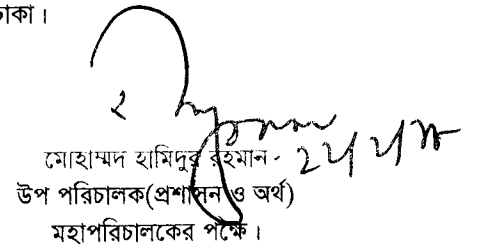 ঢাকা।
মোহাম্মদ হামিদুর রহমান
উপ পরিচালক(প্রশাসন ও অর্থ)
মহাপরিচালকের পক্ষে।